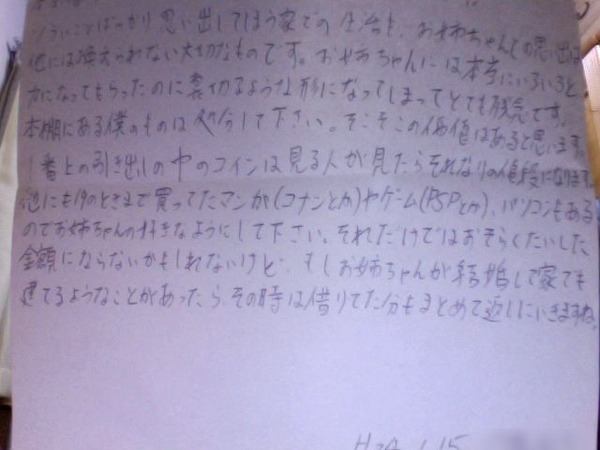 つらいことばっかり思い出してしまう家での生活も、お姉ちゃんとの思い出は
他には換えられない大切なものです。お姉ちゃんには本当にいろいろと
力になってもらったのに裏切るような形になってしまってとても残念です。
本棚にある僕のものは処分して下さい。そこそこの価値はあると思います。
1番上の引き出しの中のコインは見る人が見たらそれなりの値段になります。
他にも19のときまで買ってたマンガ(コナンとか)やゲーム(PSPとか)、パソコンもある
のでお姉ちゃんの好きなようにして下さい。それだけではおそらくたいした
金額にならないかもしれないけど、もしお姉ちゃんが結婚して家でも
建てるようなことがあったら、その時は借りてた分もまとめて返しにいきますね。
H24 1.15